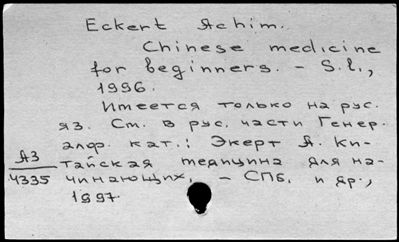 Eckert Achim.
Chinese medicine
for beginners. - S.l.,
1996.
Имеется только на рус.
яз. См. в рус. части Генер.
алф. кат.: Экерт А. Ки-
тайская медицина для на-
чинающих. - СПб. и др.,
1997.
АЗ
4335